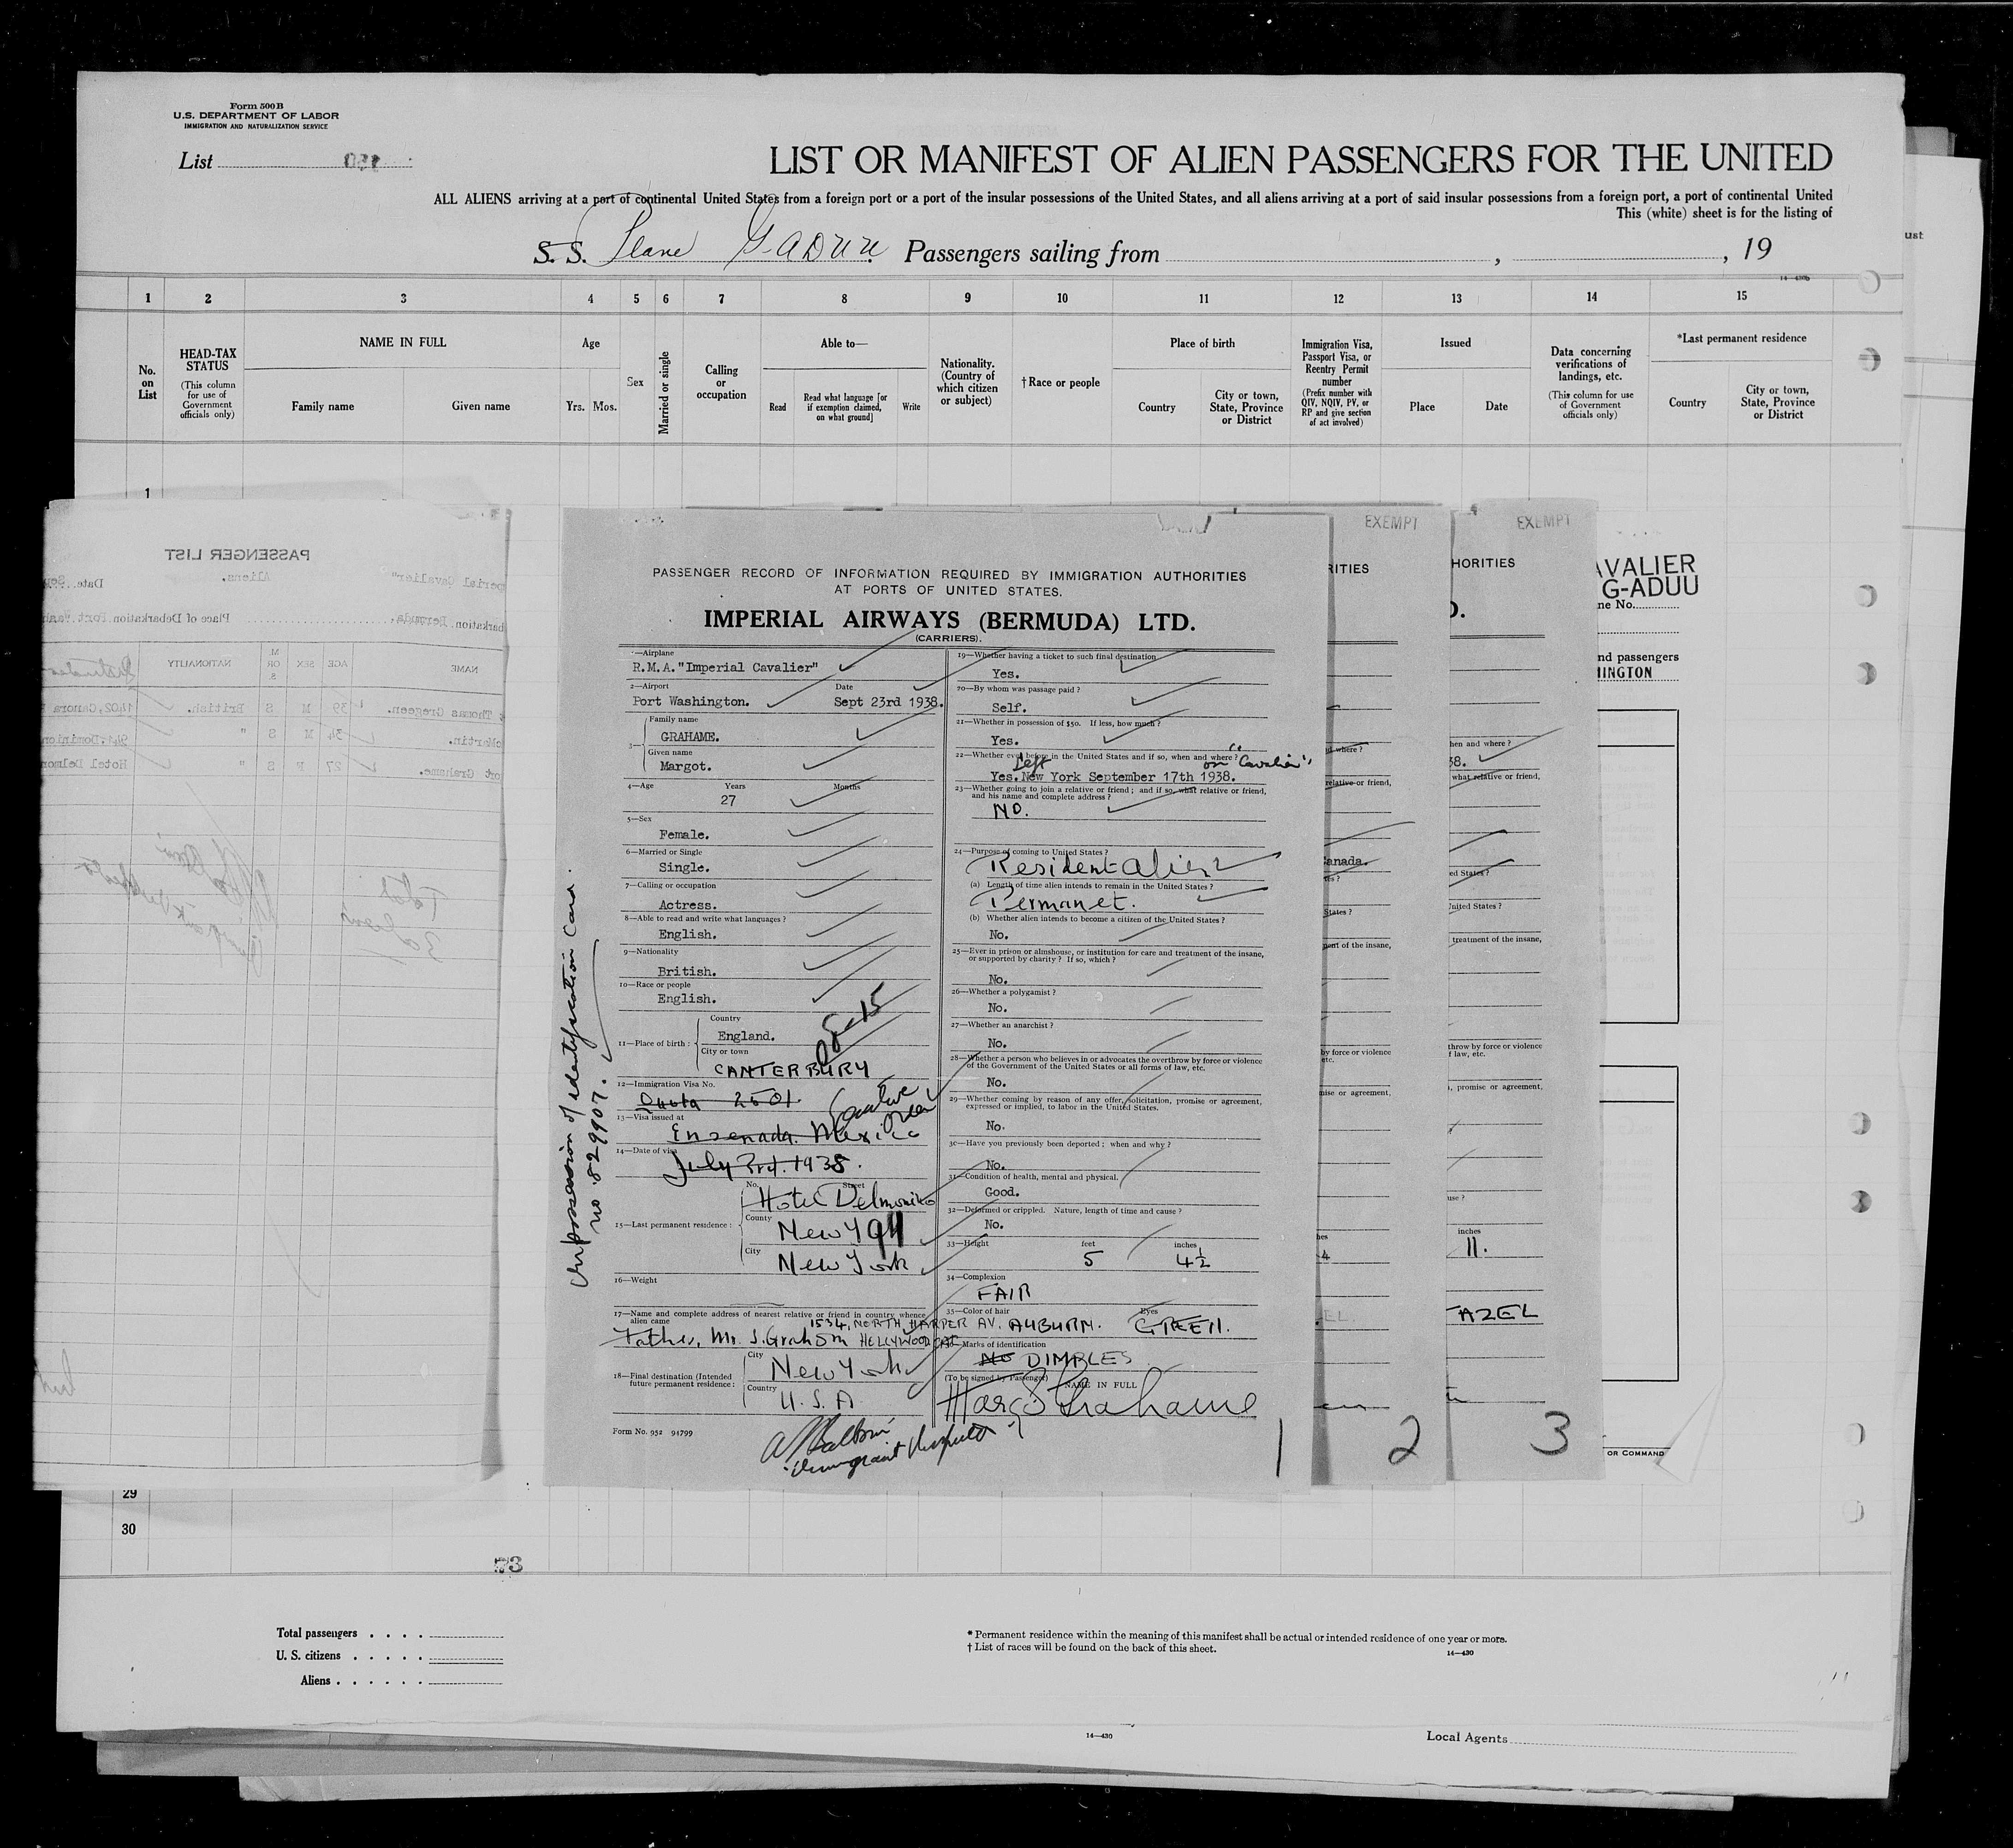 Form 500B
U.S. DEPARTMENT OF LABOR
IMMIGRATION AND NATURALIZATION SERVICE
List
LIST OR MANIFEST OF ALIEN PASSENGERS FOR THE UNITED
ALL ALIENS arriving at a port of continental United States from a foreign port or a port of the insular possessions of the United States, and all aliens arriving at a port of said insular possessions from a foreign port, a port of continental United
This (white) sheet is for the listing of
S. S. Plane G-ADUU Passengers sailing from , , 19
14-430b
1 2 3 4 5 6 7 8 9 10 11 12 13 14 15
No. on List
HEAD-TAX STATUS
(This column for use of Government officials only)
NAME IN FULL
Family name Given name
Age
Yrs. Mos.
Sex
Married or single
Calling or occupation
Able to—
Read
Read what language [or if exemption claimed, on what ground]
Write
Nationality. (Country of which citizen or subject)
†Race or people
Place of birth
Country
City or town, State, Province or District
Immigration Visa, Passport Visa, or Reentry Permit number
(Prefix number with QIV, NQIV, PV, or RP and give section of act involved)
Issued
Place Date
Data concerning verifications of landings, etc.
(This column for use of Government officials only)
*Last permanent residence
Country
City or town, State, Province or District
1
PASSENGER LIST
perial Cavalier"
Aliens.
Date
barkation Bermuda.
Place of Debarkation Port Wash
NAME AGE SEX M. OR S. NATIONALITY
Thomas Gregeen. 39 M S British. 1402, Canora
Martin. 34 M S " 941, Dominion
ot Grahame. 27 F S " Hotel Delmon
Total
3 aliens
PASSENGER RECORD OF INFORMATION REQUIRED BY IMMIGRATION AUTHORITIES
AT PORTS OF UNITED STATES.
IMPERIAL AIRWAYS (BERMUDA) LTD.
(CARRIERS).
1—Airplane
R.M.A. "Imperial Cavalier"
2—Airport Date
Port Washington. Sept 23rd 1938.
3—
Family name
GRAHAME.
Given name
Margot.
4—Age Years Months
27
5—Sex
Female.
6—Married or Single
Single.
7—Calling or occupation
Actress.
8—Able to read and write what languages ?
English.
9—Nationality
British.
10—Race or people
English.
11—Place of birth :
Country
England.
City or town
CANTERBURY
12—Immigration Visa No.
Quota 2501.
13—Visa issued at
Ensenada. Mexico
14—Date of visa
July 2rd. 1938.
15—Last permanent residence :
No. Street
Hotel Delmoniko
County
New York
City
New York
16—Weight
17—Name and complete address of nearest relative or friend in country whence alien came
1534, NORTH HARPER AV.
Father, Mr. J. Graham HOLLYWOOD CAL
18—Final destination (Intended future permanent residence :
City
New York
Country
U. S. A
Form No. 952 94799
Immigrant Inspector
In possession of identification card.
no 829907.
19—Whether having a ticket to such final destination
Yes.
20—By whom was passage paid ?
Self.
21—Whether in possession of $50. If less, how much ?
Yes.
22—Whether ever before in the United States and if so, when and where ?
Left on "Cavalier"
Yes. New York September 17th 1938.
23—Whether going to join a relative or friend ; and if so, what relative or friend, and his name and complete address ?
NO.
24—Purpose of coming to United States ?
Resident alien
(a) Length of time alien intends to remain in the United States ?
Permanet.
(b) Whether alien intends to become a citizen of the United States ?
No.
25—Ever in prison or almshouse, or institution for care and treatment of the insane, or supported by charity ? If so, which ?
No.
26—Whether a polygamist ?
No.
27—Whether an anarchist ?
No.
28—Whether a person who believes in or advocates the overthrow by force or violence of the Government of the United States or all forms of law, etc.
No.
29—Whether coming by reason of any offer, solicitation, promise or agreement, expressed or implied, to labor in the United States.
No.
30—Have you previously been deported ; when and why ?
No.
31—Condition of health, mental and physical.
Good.
32—Deformed or crippled. Nature, length of time and cause ?
No.
33—Height feet inches
5 4½
34—Complexion
FAIR
35—Color of hair Eyes
AUBURN. GREEN.
Marks of identification
No DIMPLES
(To be signed by Passenger) NAME IN FULL
Margot Grahame
1
EXEMPT
RITIES
d where ?
relative or friend,
Canada.
States ?
ment of the insane,
by force or violence
etc.
mise or agreement,
hes
4
EL.
2
EXEMPT
HORITIES
D.
hen and where ?
38.
what relative or friend,
ed States ?
United States ?
treatment of the insane,
throw by force or violence
f law, etc.
, promise or agreement,
use ?
inches
11.
AZEL
3
AVALIER
G-ADUU
ne No.
nd passengers
HINGTON
OR COMMAND
ust
29
30
Total passengers
U. S. citizens
Aliens
* Permanent residence within the meaning of this manifest shall be actual or intended residence of one year or more.
† List of races will be found on the back of this sheet.
14—430
14—430
Local Agents